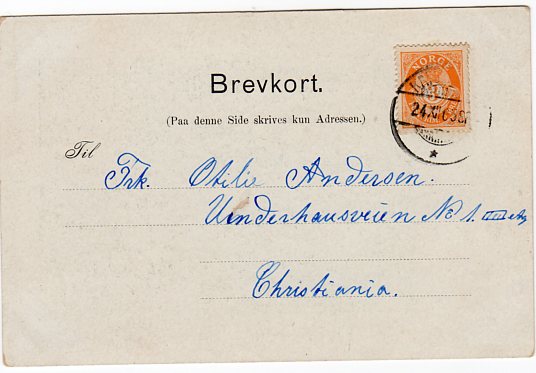 NORGE
Brevkort.
24.XI
(Paa denne Side skrives kun Adressen.)
Til
Frk. Otilie Andersen.
Underhausveien No 1. IIII etg
Christiania.